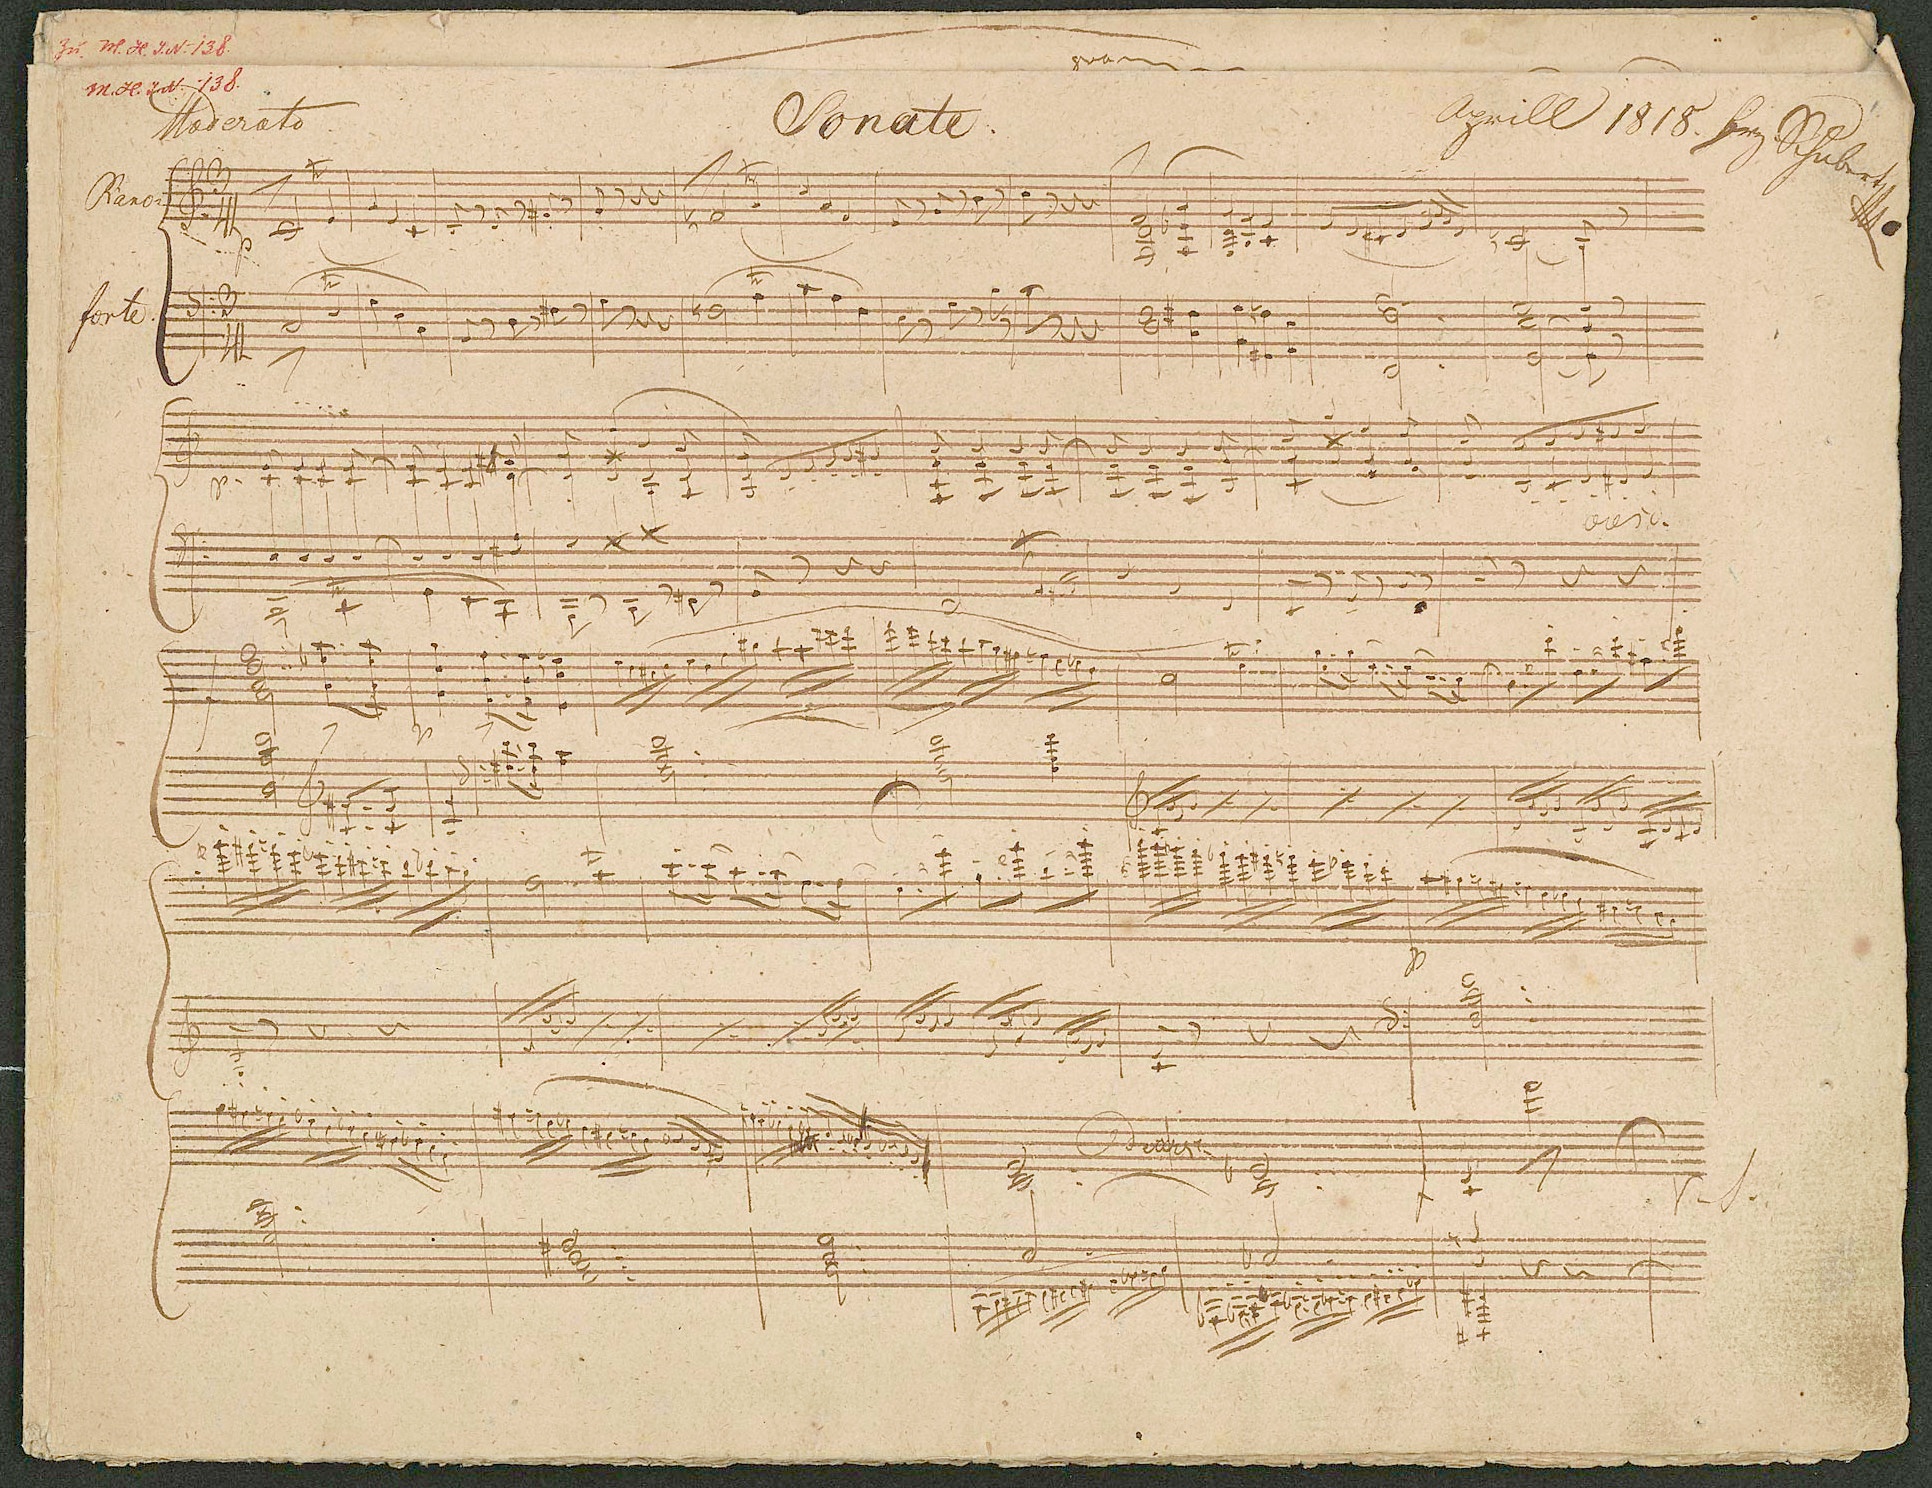 Zu M.H.I.N. 138.
M.H.I.N. 138.
Moderato
Sonate.
Aprill 1818. Frz Schubert
Piano=
forte.
p
cresc.
f
p
p
decresc.
V. S.